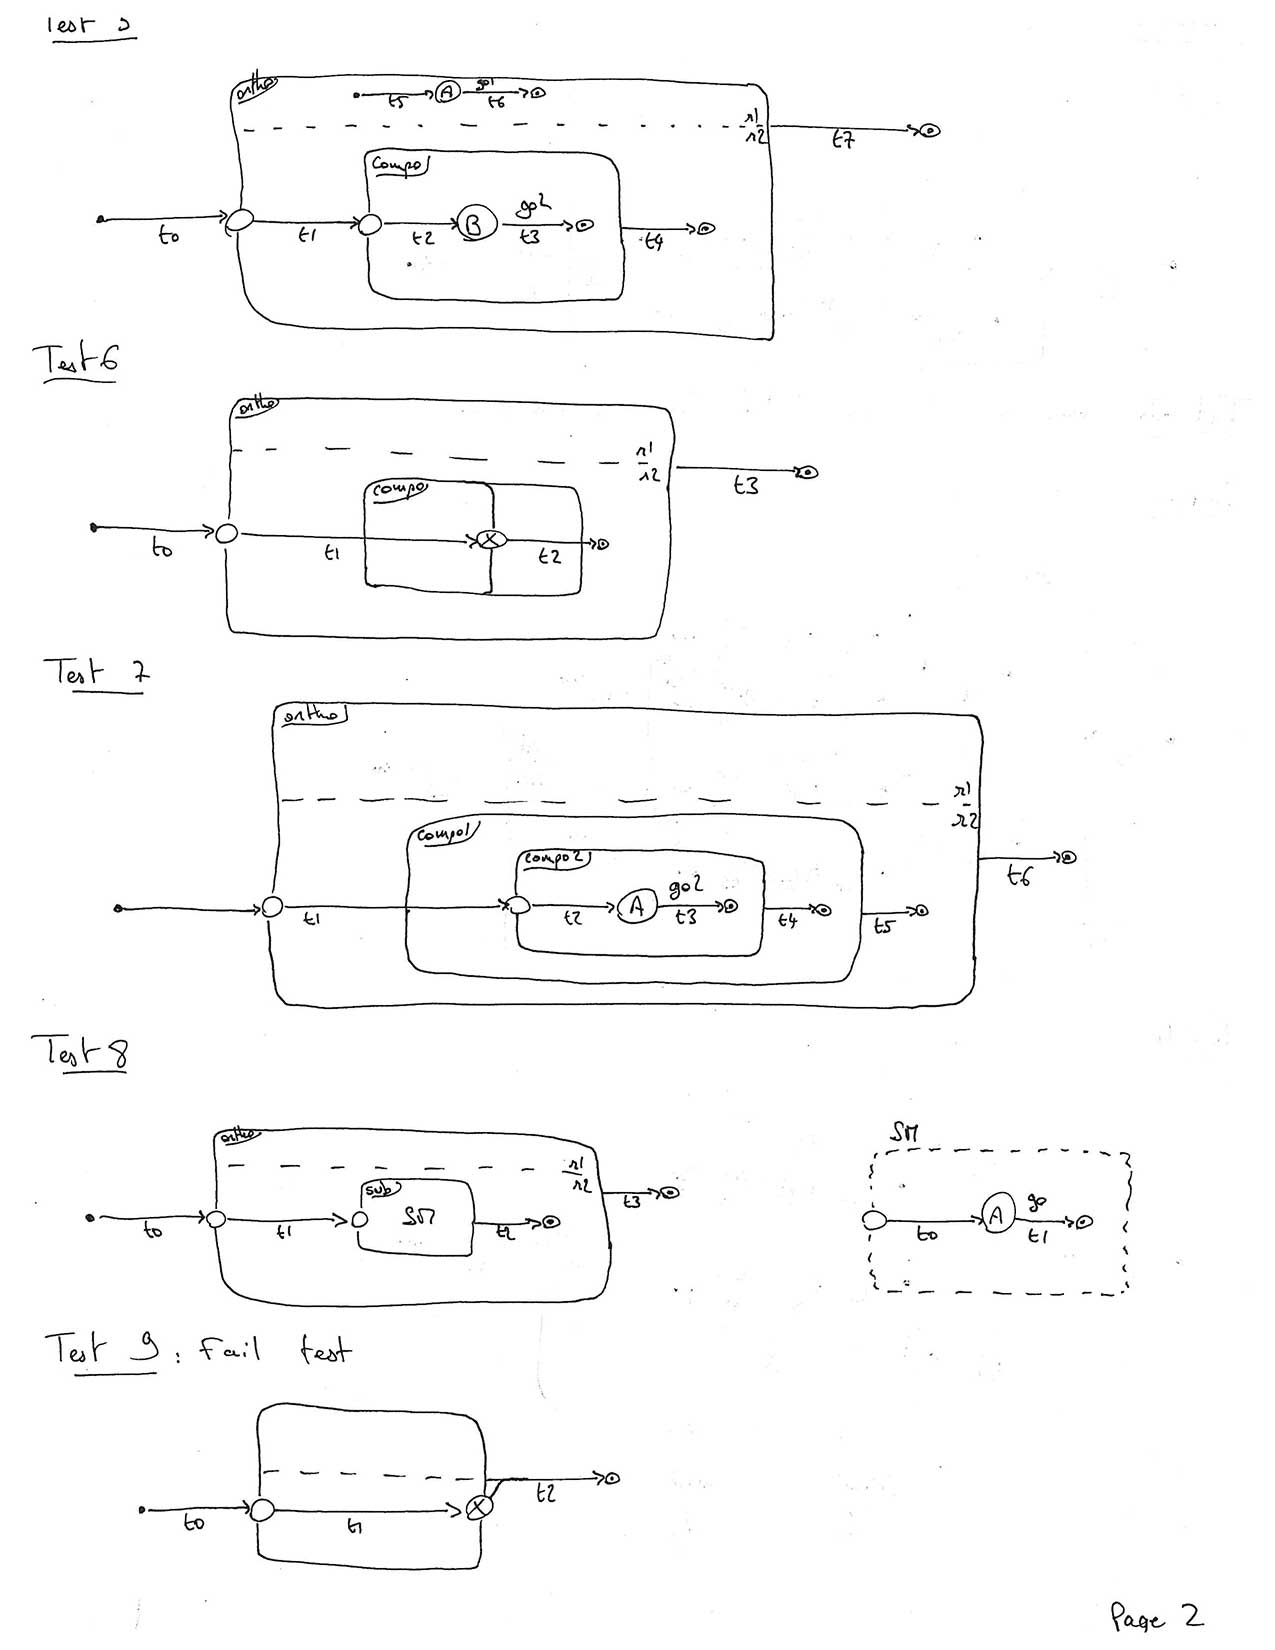 Test 5
ortho
t5 A go1 t6
r1
r2
t7
compo
t0 t1 t2 B go2 t3 t4
Test 6
ortho
r1
r2
t3
compo
t0 t1 t2
Test 7
ortho
r1
r2
compo1
compo2
t6
t1 t2 A go2 t3 t4 t5
Test 8
ortho
r1
r2
sub
SM
t0 t1 t2 t3
SM
t0 A go t1
Test 9 : Fail test
t0 t1 t2
Page 2